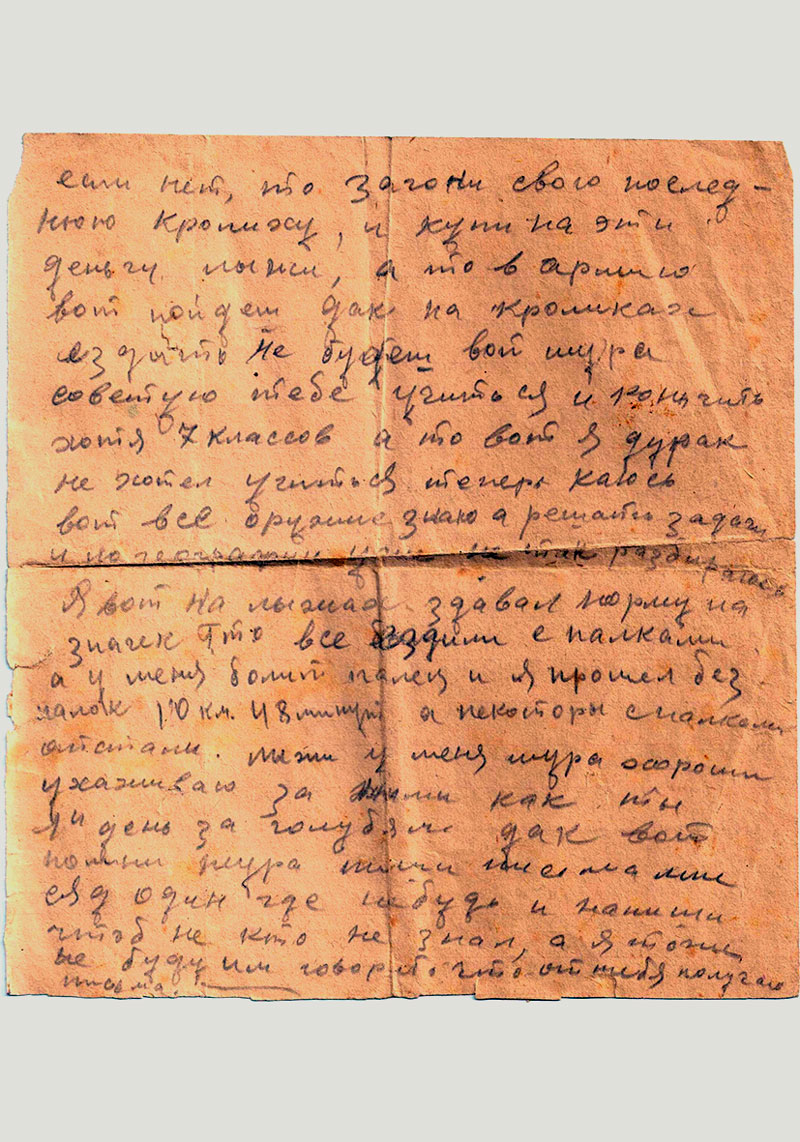 если нет, то загони свою послед-
нюю кролиху, и купи на эти
деньгу лыжи, а то в армию
вот пойдеш дак на кроликах
ездить не будеш вот шура
советую тебе учиться и кончить
хотя 7 классов а то вот я дурак
не хотел учиться теперь каюсь
вот всё оружие знаю а решать задачи
и по географии уже не так разбираюсь
Я вот на лыжах здавал норму на
значек ГТО все ездили с палками
а у меня болит палец и я прошел без
палок 10 км. 48 минут а некоторы с палками
отстали. лыжи у меня шура хороши
ухаживаю за ними как ты
день за голубями дак вот
помни шура пиши письма мне
сяд один где нибудь и напиши
чтоб не кто не знал, а я тоже
не буду им говорить что от тебя получаю
письма.